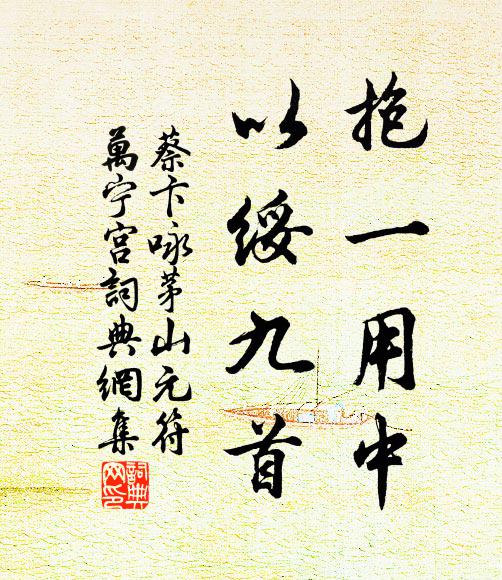 抱一用中
以綏九首
蔡卞咏茅山元符
萬宁宫詞典網集
詞典
网印